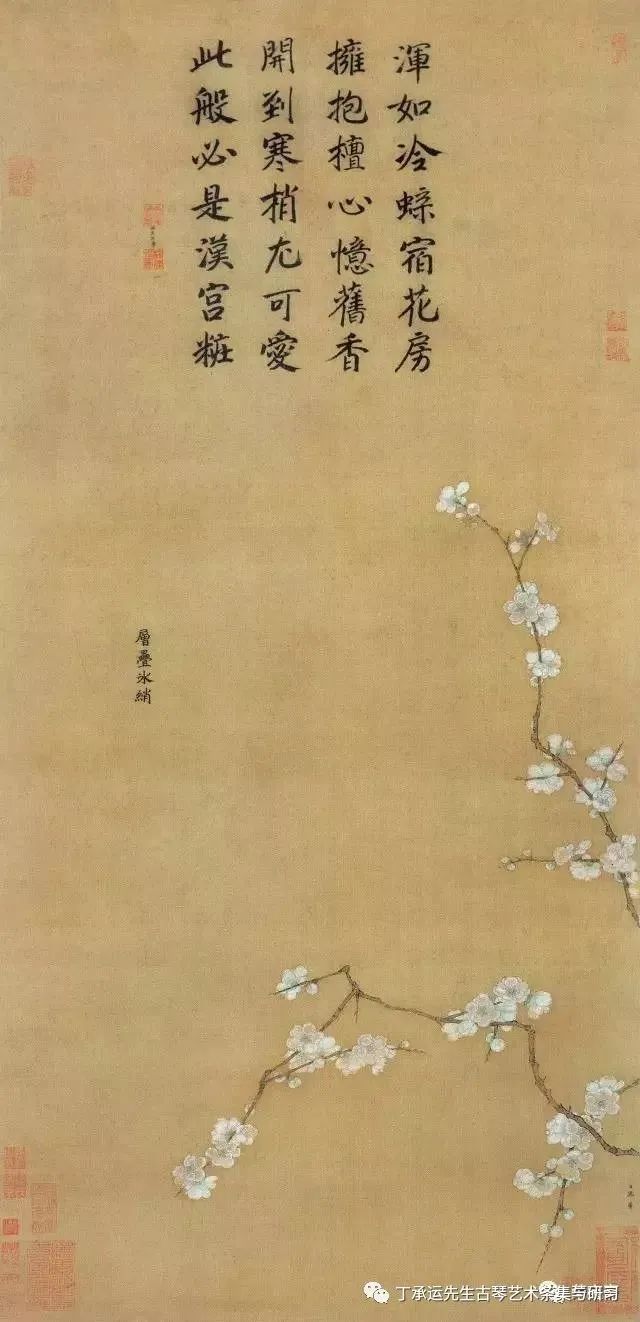 渾如冷蜨宿花房
擁抱檀心憶舊香
開到寒梢尤可愛
此般必是漢宮粧
層疊氷綃
丁承运先生古琴艺术